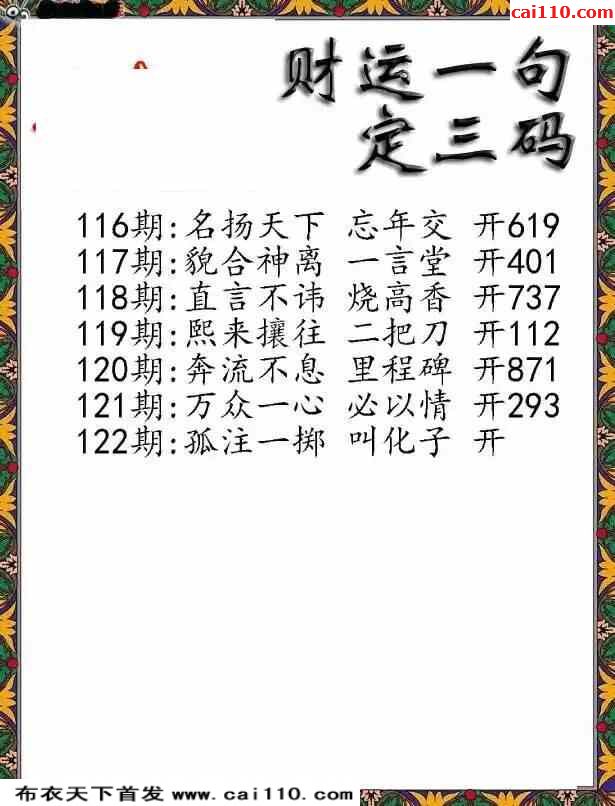 cai110.com
财运一句
定三码
116期:名扬天下 忘年交 开619
117期:貌合神离 一言堂 开401
118期:直言不讳 烧高香 开737
119期:熙来攘往 二把刀 开112
120期:奔流不息 里程碑 开871
121期:万众一心 必以情 开293
122期:孤注一掷 叫化子 开
布衣天下首发 www.cai110.com